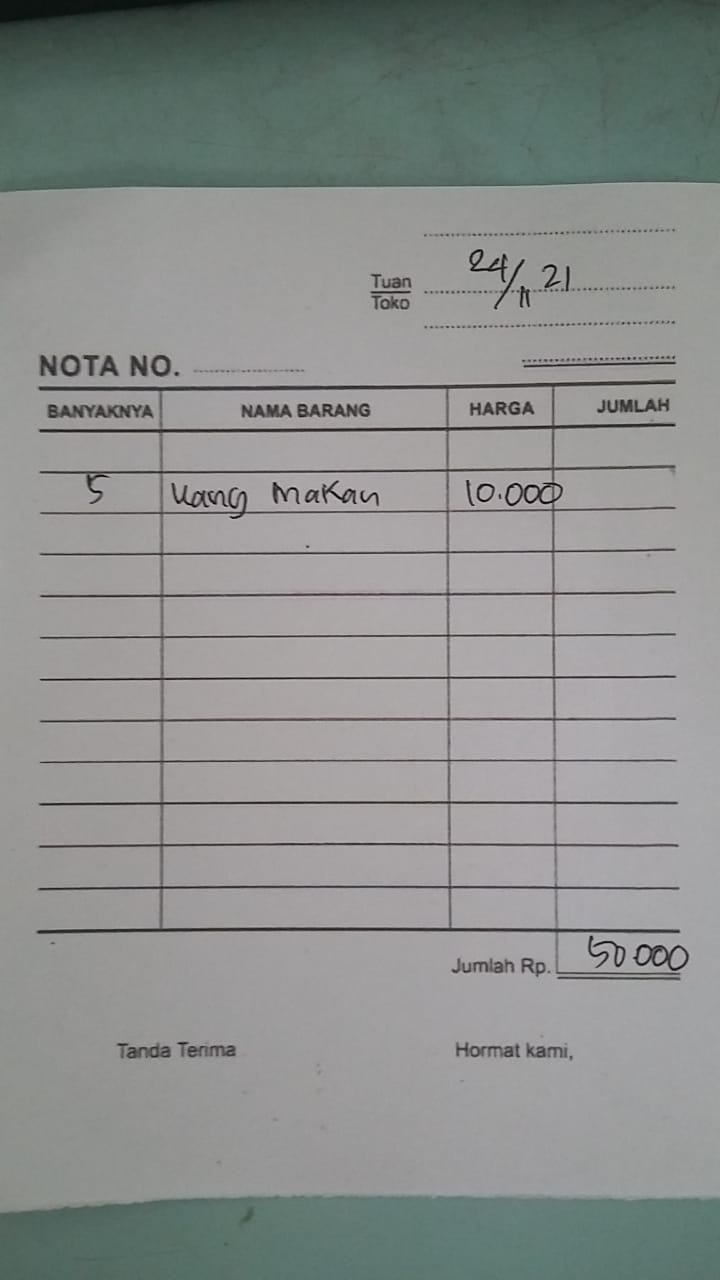 24/11 21
Tuan
Toko
NOTA NO.
BANYAKNYA NAMA BARANG HARGA JUMLAH
5 Uang Makan 10.000
Jumlah Rp. 50.000
Tanda Terima Hormat kami,